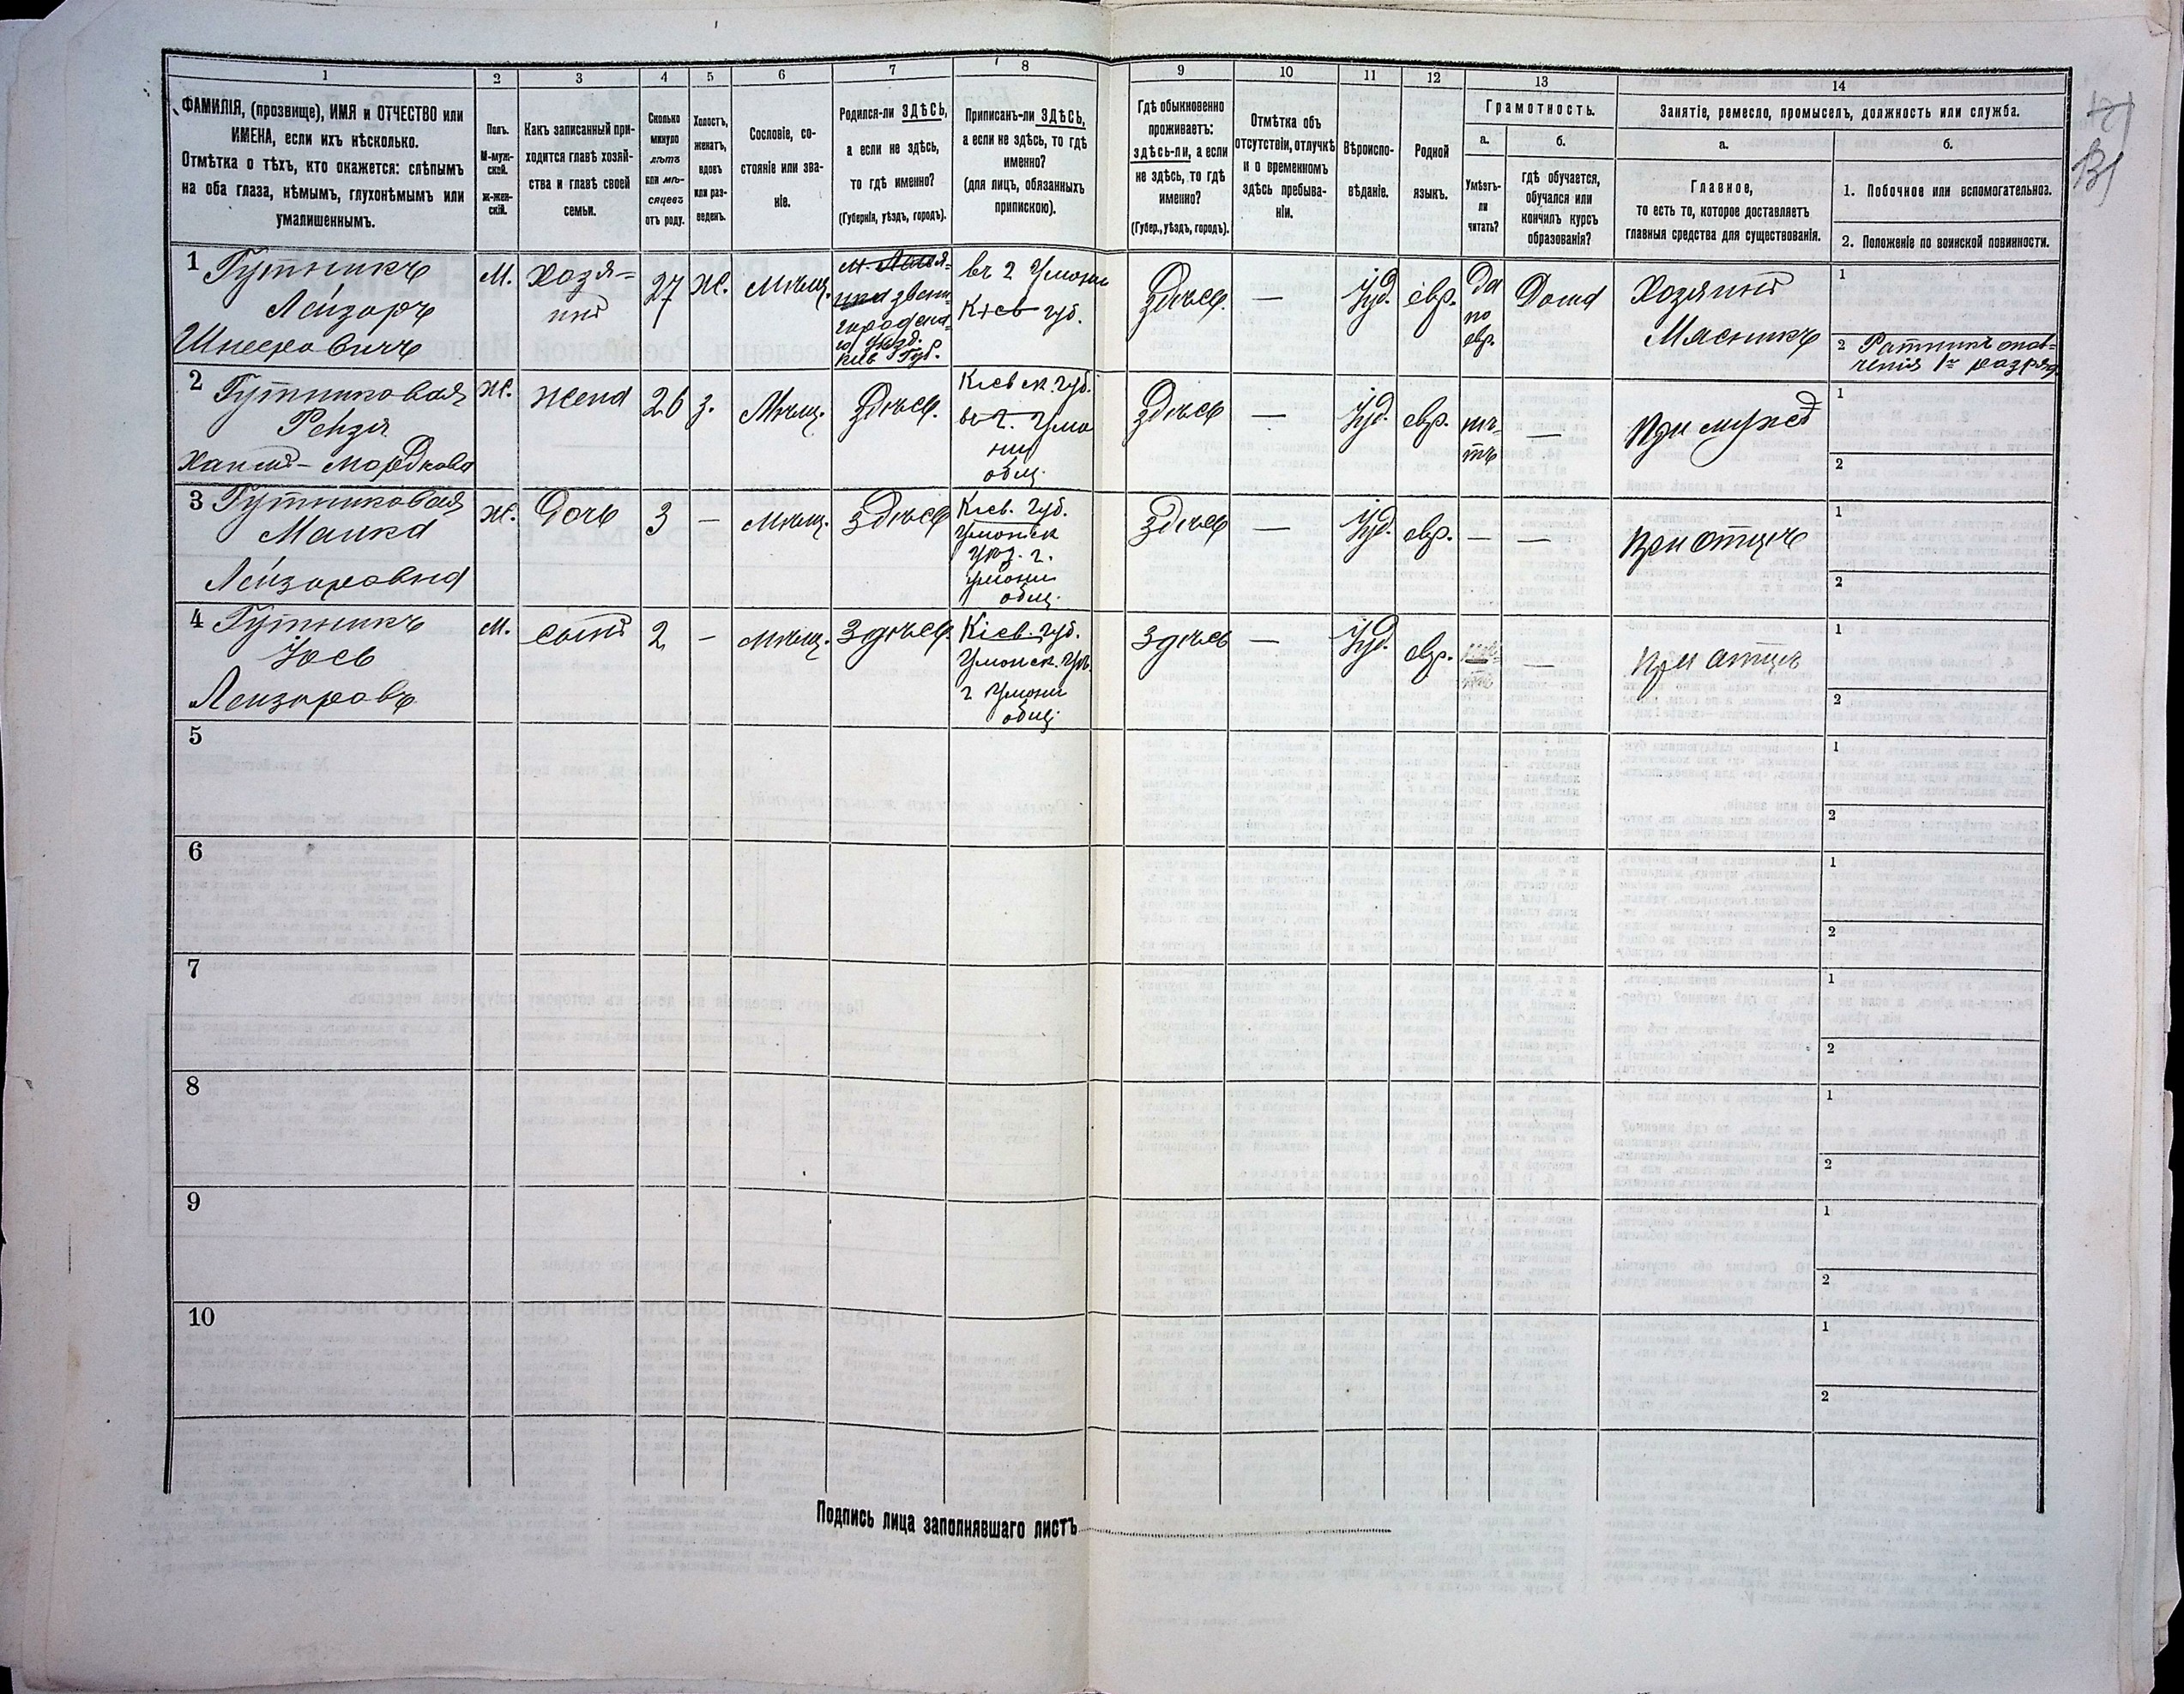 1 2 3 4 5 6 7 8 9 10 11 12 13 14
ФАМИЛІЯ, (прозвище), ИМЯ и ОТЧЕСТВО или
ИМЕНА, если ихъ нѣсколько.
Отмѣтка о тѣхъ, кто окажется: слѣпымъ
на оба глаза, нѣмымъ, глухонѣмымъ или
умалишеннымъ.
Полъ.
М-муж-
ской.
ж-жен-
скій.
Какъ записанный при-
ходится главѣ хозяй-
ства и главѣ своей
семьи.
Сколько
минуло
лѣтъ
или мѣ-
сяцевъ
отъ роду.
Холостъ,
женатъ,
вдовъ
или раз-
веденъ.
Сословіе, со-
стояніе или зва-
ніе.
Родился-ли ЗДѢСЬ,
а если не здѣсь,
то гдѣ именно?
(Губернія, уѣздъ, городъ).
Приписанъ-ли ЗДѢСЬ,
а если не здѣсь, то гдѣ
именно?
(для лицъ, обязанныхъ
припискою).
Гдѣ обыкновенно
проживаетъ:
здѣсь-ли, а если
не здѣсь, то гдѣ
именно?
(Губер., уѣздъ, городъ).
Отмѣтка объ
отсутствіи, отлучкѣ
и о временномъ
здѣсь пребыва-
ніи.
Вѣроиспо-
вѣданіе.
Родной
языкъ.
Грамотность.
а.
Умѣетъ-
ли
читать?
б.
гдѣ обучается,
обучался или
кончилъ курсъ
образованія?
Занятіе, ремесло, промыселъ, должность или служба.
а.
Главное,
то есть то, которое доставляетъ
главныя средства для существованія.
б.
1. Побочное или вспомогательное.
2. Положеніе по воинской повинности.
131
1 Гутникъ
Лейзоръ
М.
Хозя-
инъ
27
Ж.
Мѣщ.
звени-
городска-
го уѣзд.
Кіев Губ.
въ г Умони
Кіев губ.
Здѣсь.
—
Іуд.
евр.
Да
по
евр.
Дома
Хозяинъ
Мясникъ
1
2 Ратникъ опол-
ченія 1го разряд
2 Гутниковая
Рейзя
Ж.
жена
26
з.
Мѣщ.
Здѣсь.
Кіевск. губ.
въ г. Умо
ни
общ.
Здѣсь
—
Іуд.
евр.
нѣ-
тъ
—
При мужѣ
1
2
3 Гутниковая
Малка
Лейзоровна
Ж.
Дочь
3
—
Мѣщ.
Здѣсь
Кіев. Губ.
Умонск
Уѣз. г.
Умони
общ.
Здѣсь
—
Іуд.
евр.
—
—
При отцѣ
1
2
4 Гутникъ
Іось
Лейзоровъ
М.
сынъ
2
—
Мѣщ.
Здѣсь.
Кіев. губ.
Умонск. Уѣз.
г Умони
общ.
Здѣсь
—
Іуд.
евр.
—
При отцѣ
1
2
5
1
2
6
1
2
7
1
2
8
1
2
9
1
2
10
1
2
Подпись лица заполнявшаго листъ